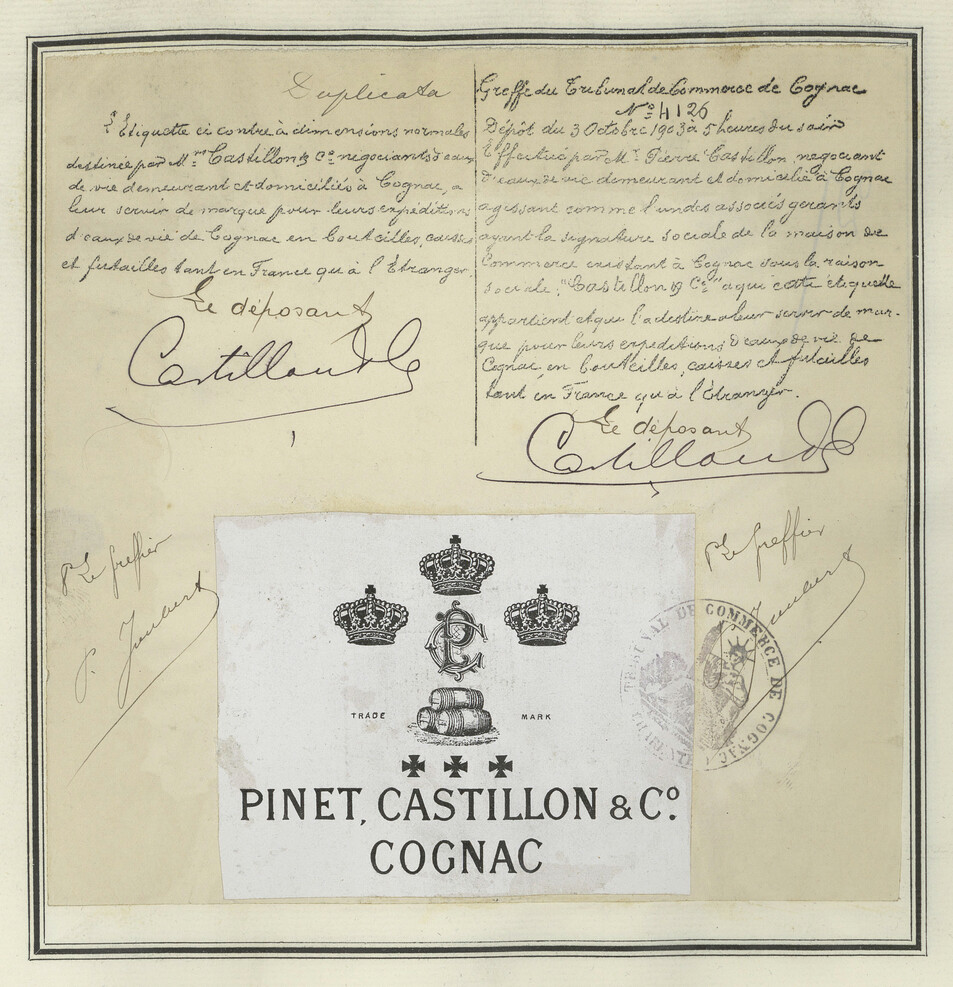 Duplicata
L'Etiquette ci contre à dimensions normales
destinée par Mrs Castillon & Co negociants d'eaux
de vie demeurant et domiciliés à Cognac, a
leur servir de marque pour leurs expéditions
d'eaux de vie de Cognac en bouteilles, caisses
et futailles tant en France qu'à l'Etranger.
Le déposant
Castillon & Co
Pr Le greffier
Greffe du Tribunal de Commerce de Cognac
No 4126
Dépôt du 3 Octobre 1903 à 5 heures du soir
Effectué par Mr Pierre Castillon, negociant
d'eaux de vie demeurant et domicilié à Cognac
agissant comme l'un des associés gerants
ayant la signature sociale de la maison de
Commerce existant à Cognac sous la raison
sociale, "Castillon & Co" a qui cette étiquette
appartient et qui l'a destine a leur servir de mar-
que pour leurs expeditions d'eaux de vie de
Cognac, en bouteilles, caisses et futailles
tant en France qu'à l'Etranger.
Le déposant
Castillon & Co
Pr Le greffier
TRADE MARK
PINET, CASTILLON & Co.
COGNAC
TRIBUNAL DE COMMERCE DE COGNAC